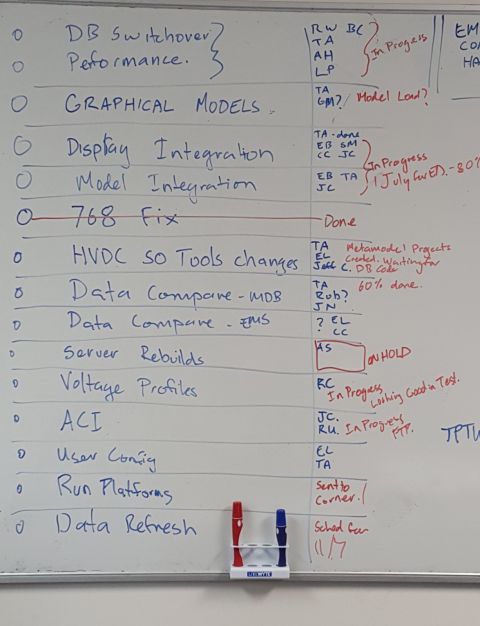 DB Switchover
Performance.
RW BC
TA
AH
LP
In Progess
GRAPHICAL MODELS.
TA
GM?
Model Load?
Display Integration
TA - done
EB SM
CC JC
Model Integration
EB TA
JC
In Progress
1 July for ED. - 80%
768 Fix
Done
HVDC SO Tools changes
TA
EL
Jeff C.
Metamodel Projects
Created. Waiting for
DB Code
Data Compare - MDB
TA
Rob?
JN
60% done.
Data Compare - EMS
? EL
CC
Server Rebuilds
AS
ON HOLD
Voltage Profiles
BC
In Progress,
Looking Good in Test.
ACI
JC.
RU.
In Progress
FTP.
User Config
EL
TA
Run Platforms
Sent to
Corner.!
Data Refresh
Sched for
11/7
EM
CO
HA
TPTW